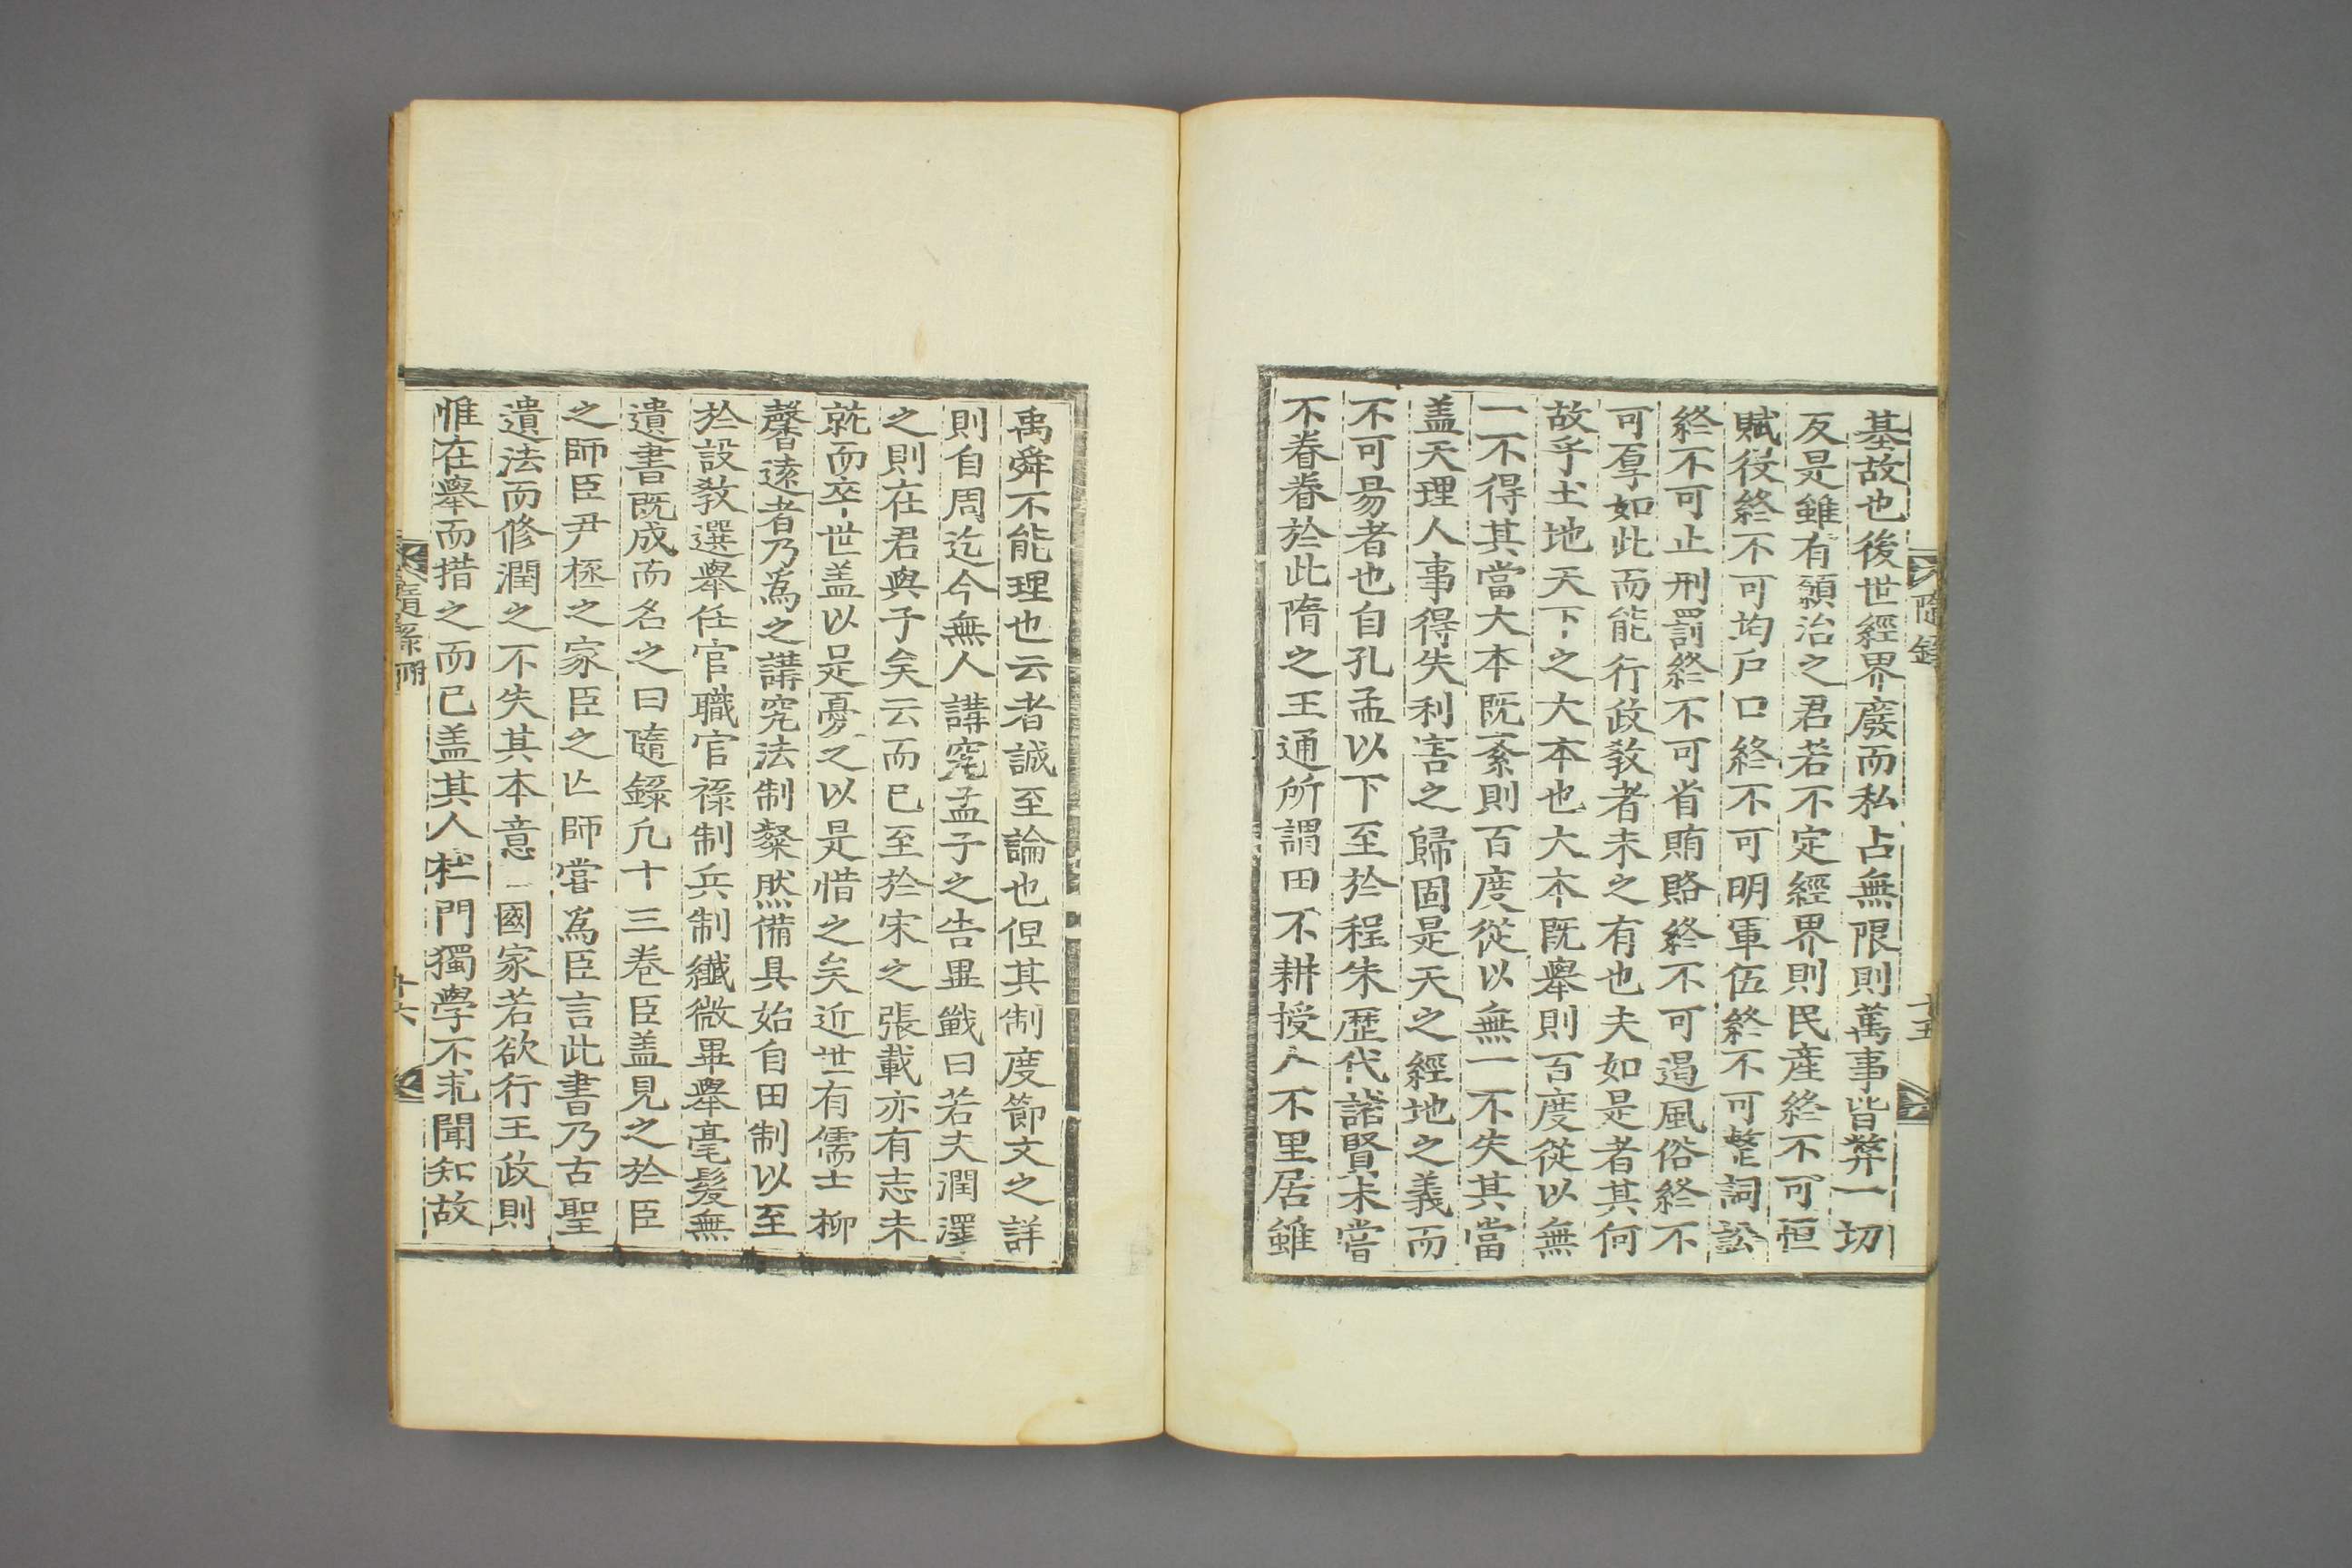 隨錄
十五
基故也後世經界廢而私占無限則萬事皆弊一切
反是雖有願治之君若不定經界則民產終不可恒
賦役終不可均戶口終不可明軍伍終不可整詞訟
終不可止刑罰終不可省賄賂終不可遏風俗終不
可厚如此而能行政敎者未之有也夫如是者其何
故乎土地天下之大本也大本既舉則百度從以無
一不得其當大本既紊則百度從以無一不失其當
盖天理人事得失利害之歸固是天之經地之義而
不可昜者也自孔孟以下至於程朱歷代諸賢未嘗
不眷眷於此隋之王通所謂田不耕授人不里居雖
禹舜不能理也云者誠至論也但其制度節文之詳
則自周迄今無人講究孟子之告畢戰曰若夫潤澤
之則在君與子矣云而已至於宋之張載亦有志未
就而卒世盖以是憂之以是惜之矣近世有儒士柳
馨遠者乃爲之講究法制粲然備具始自田制以至
於設敎選舉任官職官祿制兵制纖微畢舉毫髮無
遺書既成而名之曰隨錄凡十三卷臣盖見之於臣
之師臣尹拯之家臣之亾師嘗爲臣言此書乃古聖
遺法而修潤之不失其本意 國家若欲行王政則
惟在舉而措之而已盖其人杜門獨學不求聞知故
隨錄
十六